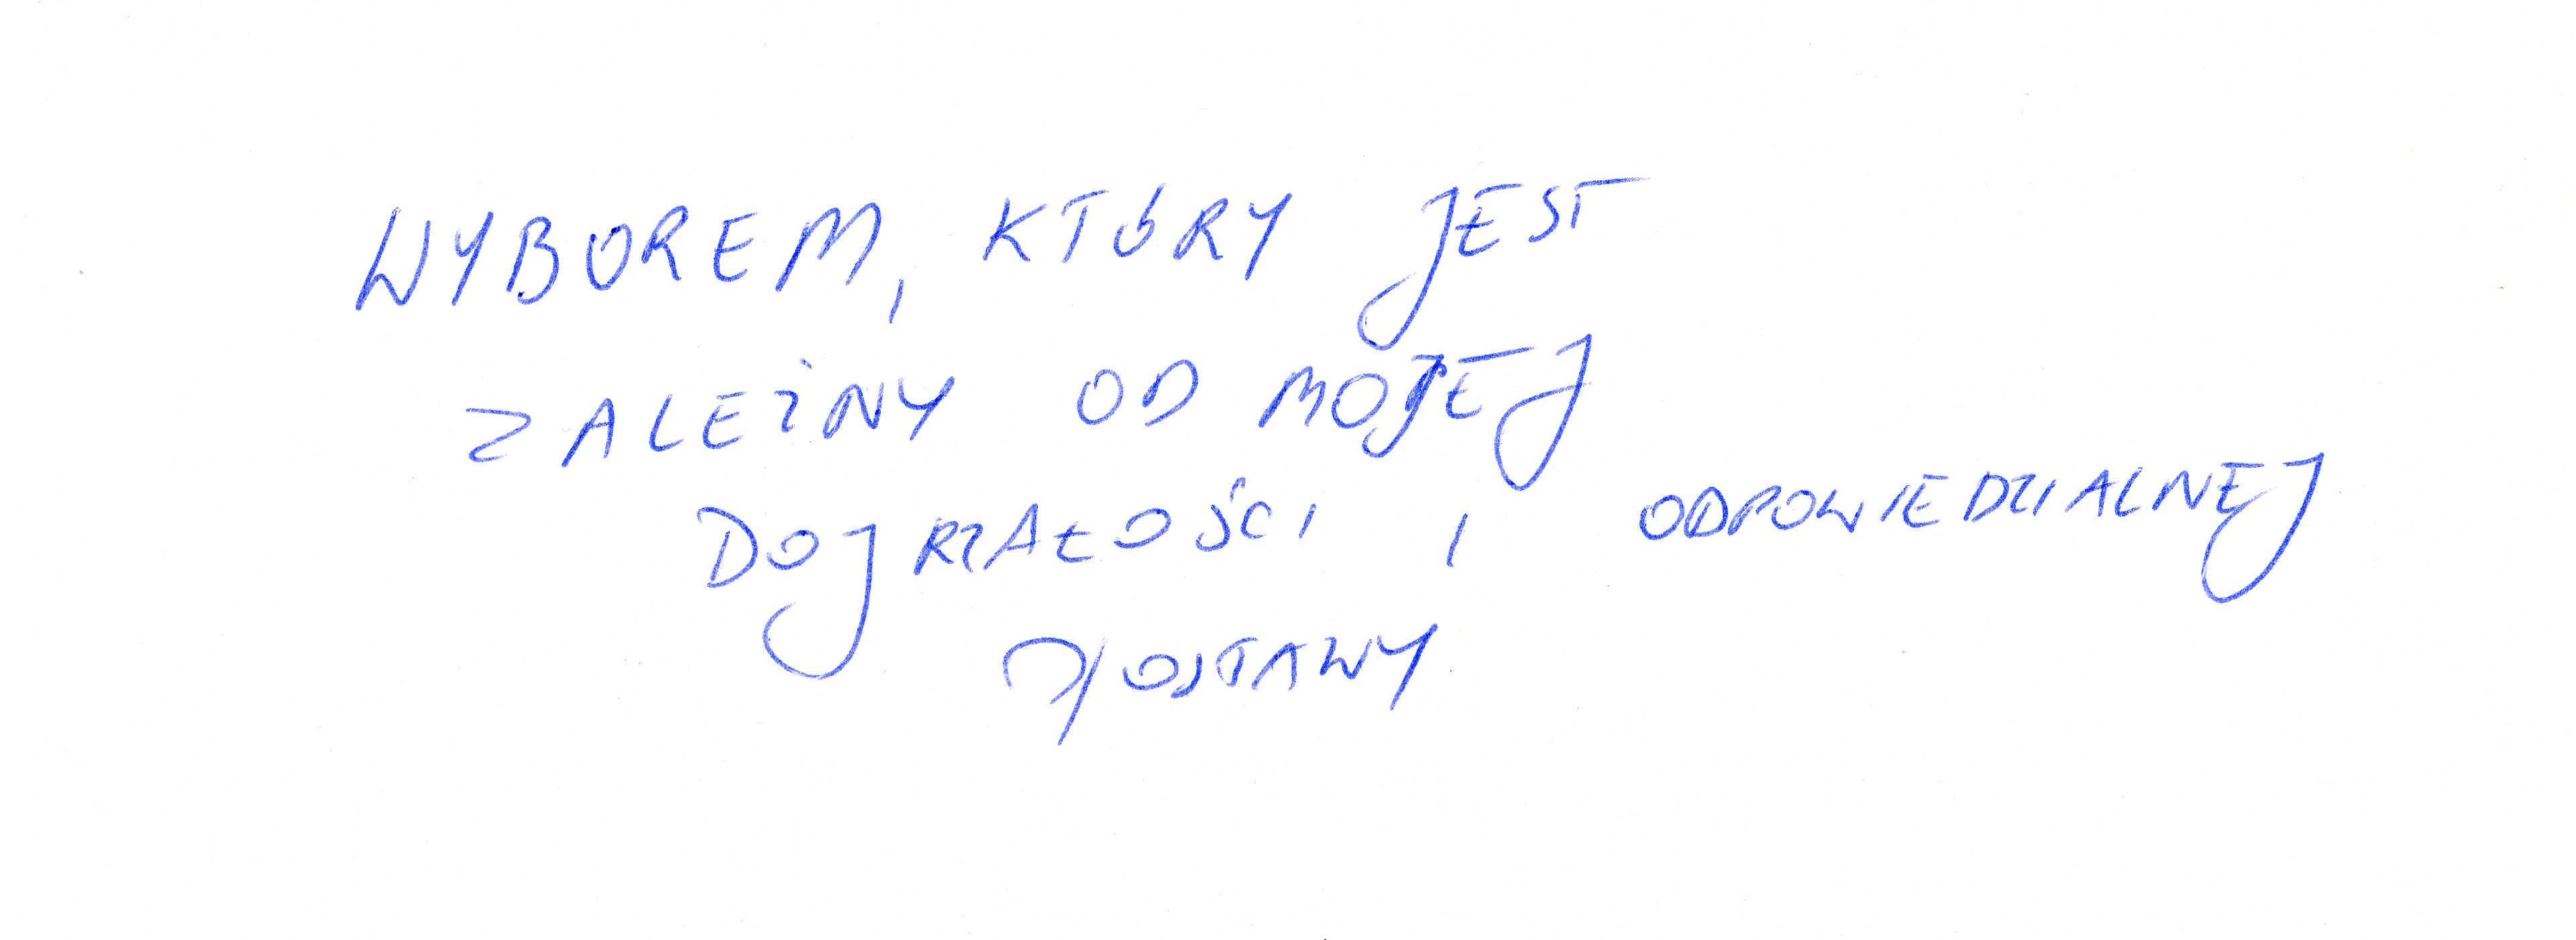 WYBOREM, KTÓRY JEST
ZALEŻNY OD MOJEJ
DOJRZAŁOŚCI I ODPOWIEDZIALNEJ
POSTAWY